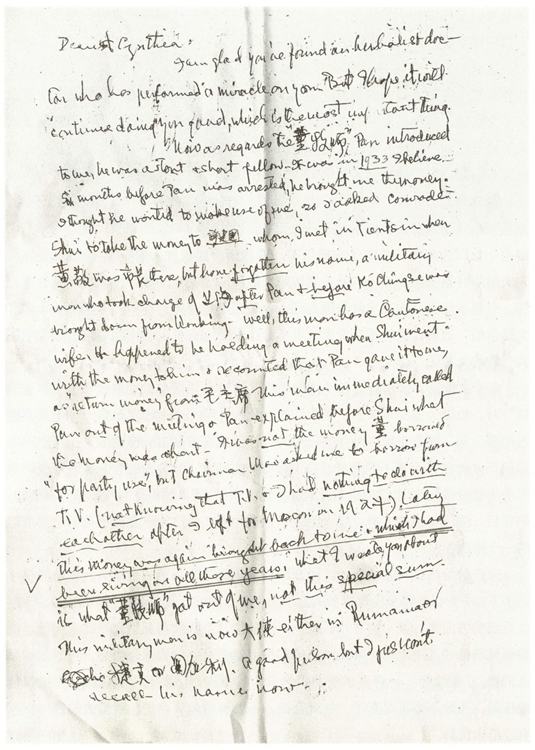 Dearest Cynthia:
I am glad you've found an herbalist doc-
tor who has performed a miracle on you. But I hope it will
"continue doing" you good, which is the most important thing.
Now as regards the "董" Pan introduced
to me, he was a stout & short fellow. It was in 1933 I believe.
months before Pan was arrested, he brought me the money.
I thought he wanted to make use of me, so I asked comrade
Shui to take the money to whom, I met in Tientsin when
黄敬 was 市長 there, but have forgotten his name, a military
man who took charge of 上海 after Pan & before Ko Chingse was
brought down from Nanking. Well, this man has a Cantonese
wife. He happened to be holding a meeting when Shui went
with the money to him & recounted that Pan gave it to me,
as return money from 毛主席. This man immediately called
Pan out of the meeting & Pan explained before Shui what
the money was about. It was not the money 董 borrowed
"for party use", but Chairman Mao asked me to borrow from
T.V. (not knowing that T.V. & I had nothing to do with
each other after I left for Moscow in 1927). Later
this money was again brought back to me & which I had
been living on all these years." What I wrote you about
is what "董" got out of me, not this special sum.
This military man is now 大使 either in Rumania or
捷克 or 加利. A good person but I just can't
recall his name now.